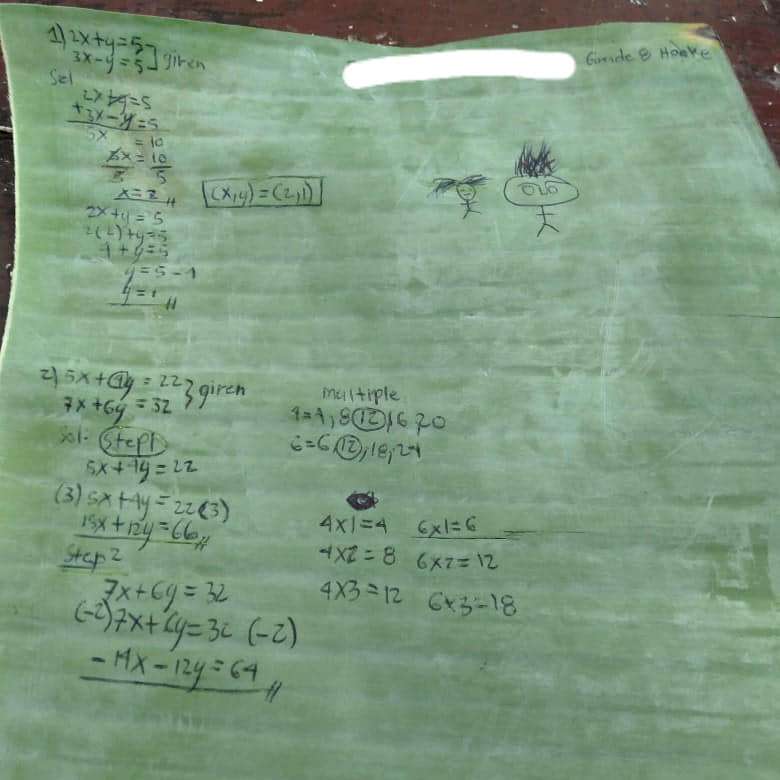 1) 2x+y=5
3x-y=5 ] given
Grade 8
Sol
2x+y=5
+3x-y=5
5x = 10
5x = 10
5 5
x=2 //
(x,y)=(2,1)
2x+y=5
2(2)+y=5
4+y=5
y=5-4
y=1 //
2) 5x+4y=22
7x+6y=32 } given
Sol- Step1
5x+4y=22
(3)5x+4y=22(3)
15x+12y=66 //
Step 2
7x+6y=32
(-2)7x+6y=32(-2)
-14x-12y=64 //
multiple
4=4,8,12,16,20
6=6,12,18,24
4x1=4 6x1=6
4x2=8 6x2=12
4x3=12 6x3=18